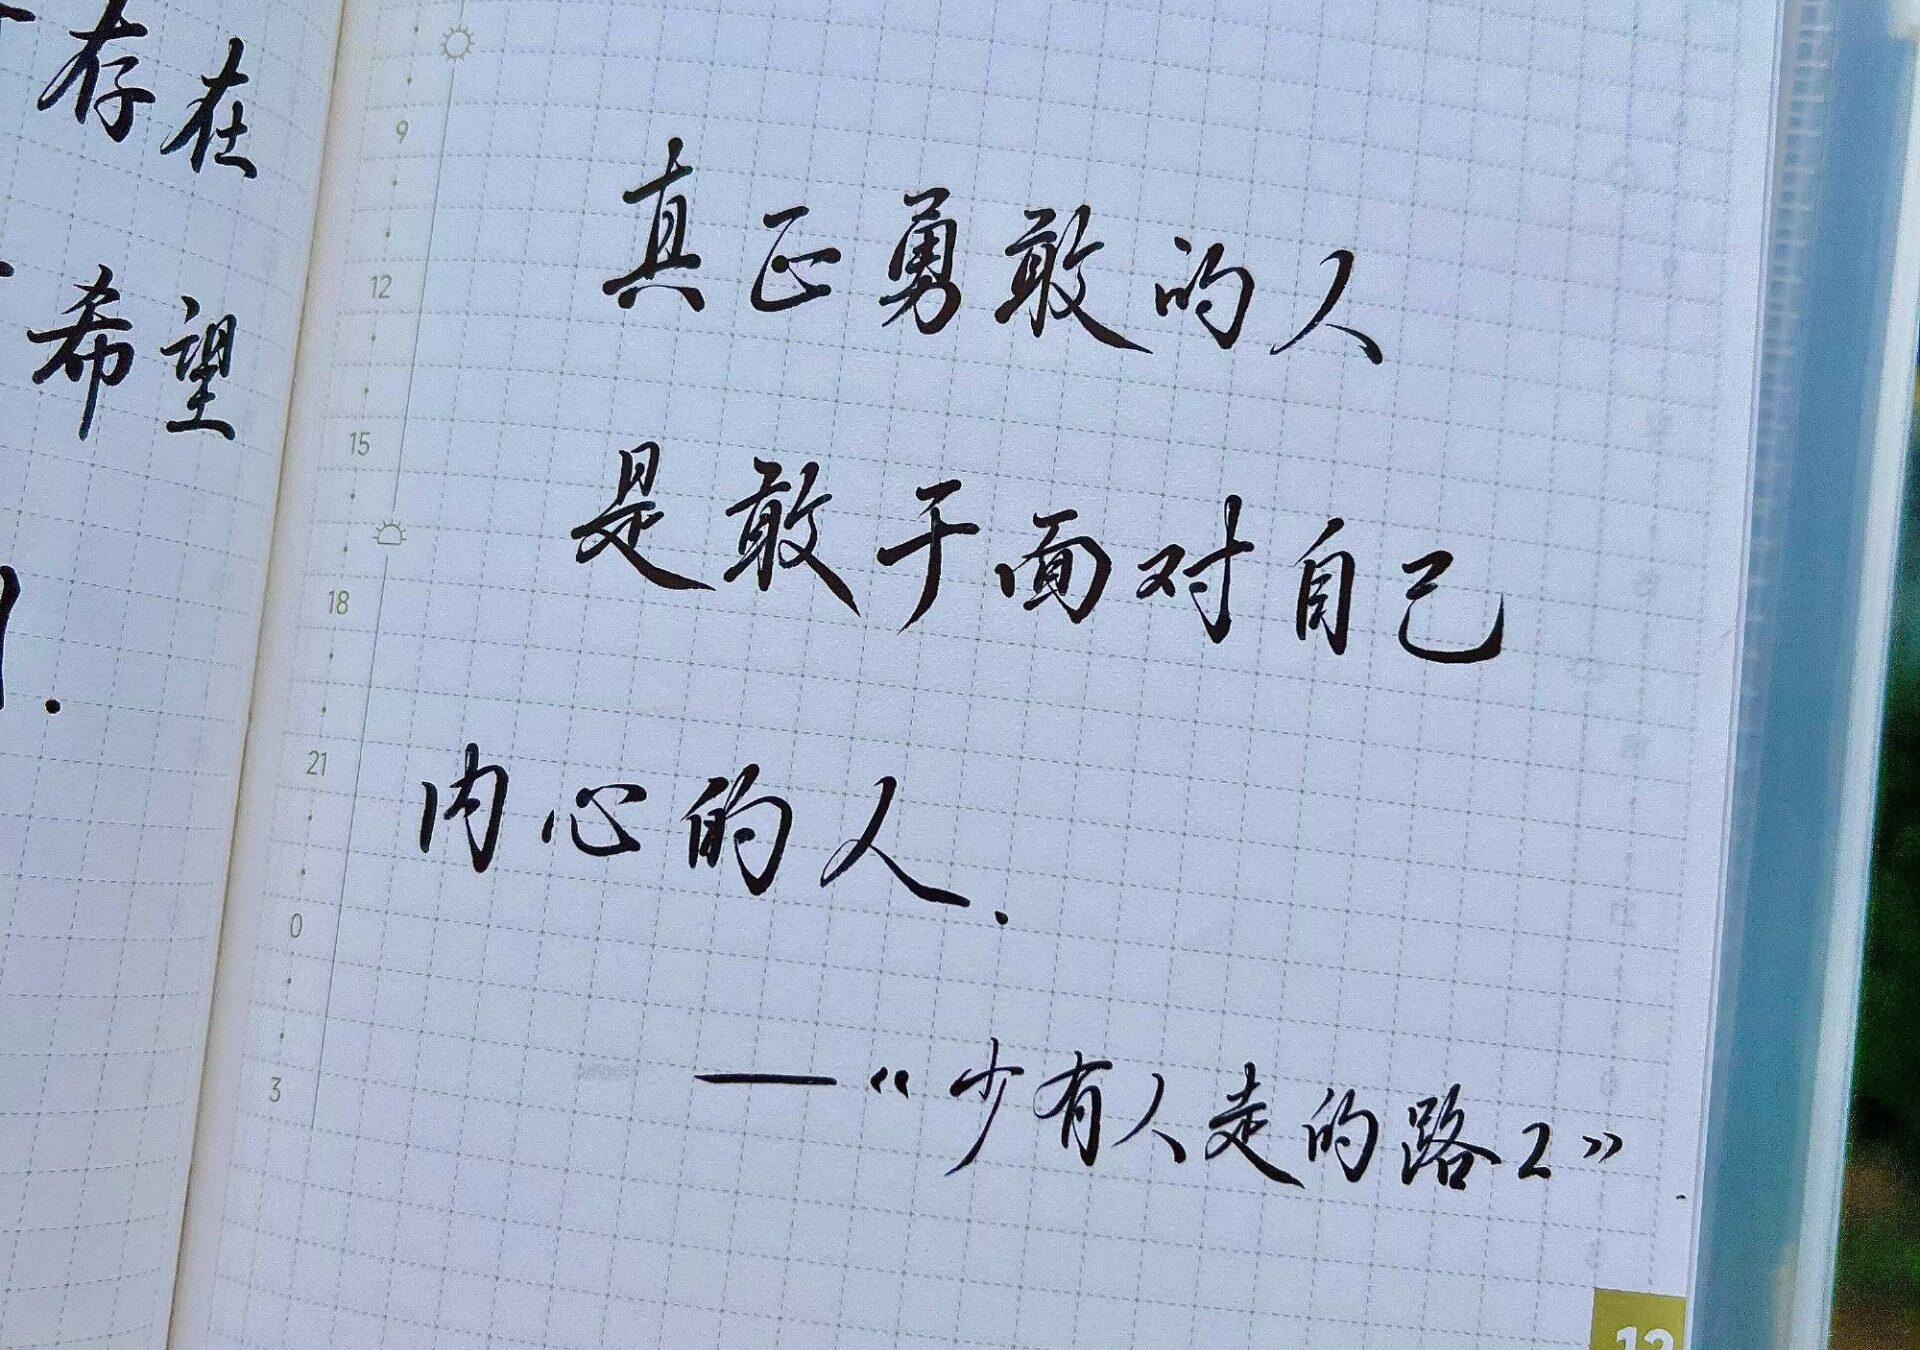 存在
希望
真正勇敢的人
是敢于面对自己
内心的人.
—“少有人走的路2”
9
12
15
18
21
0
3
12